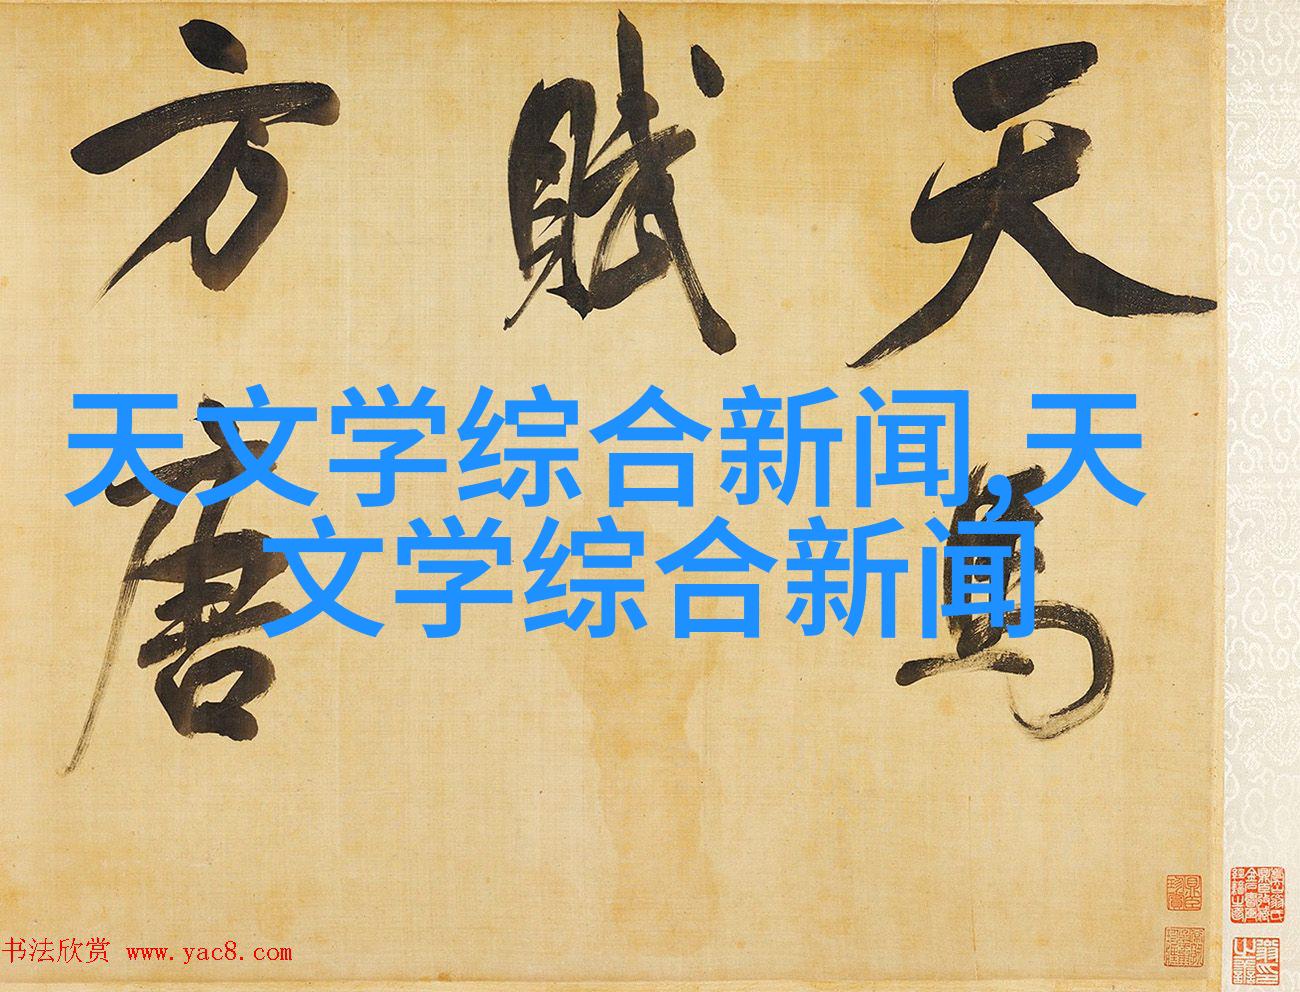 天馬
賦
方唐
天文学综合新闻,天
文学综合新闻
书法欣赏 www.yac8.com